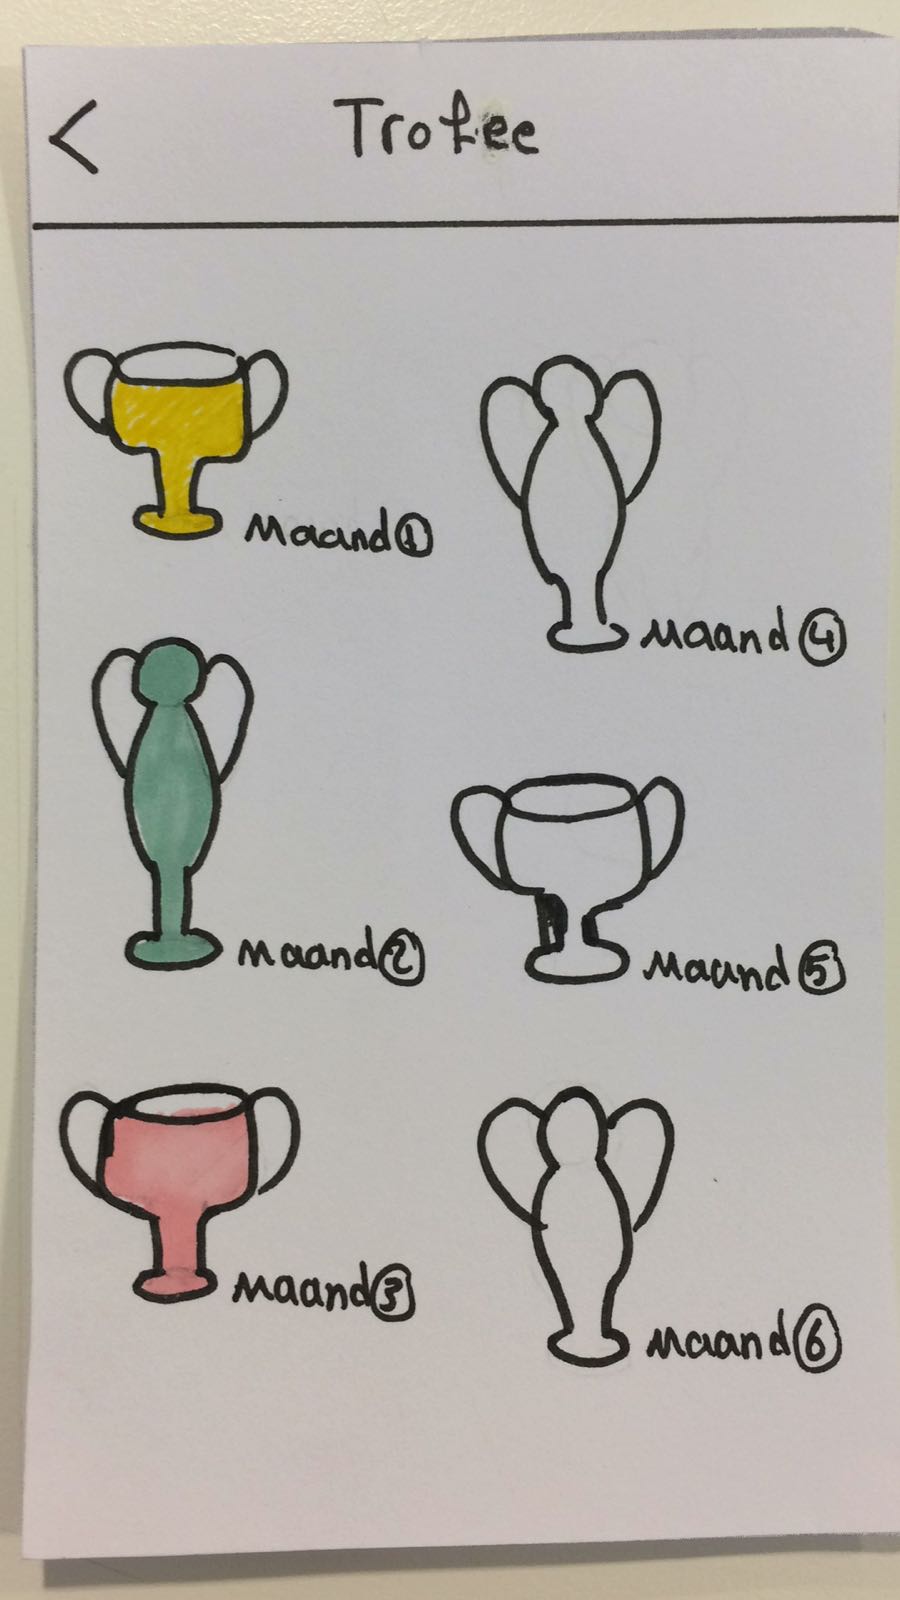 < Trofee
Maand ①
Maand ②
Maand ③
Maand ④
Maand ⑤
Maand ⑥